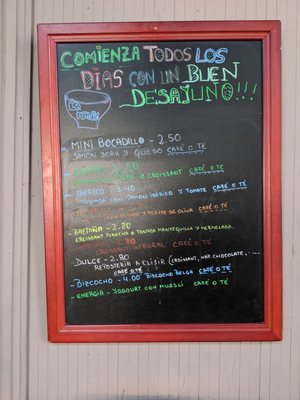 COMIENZA TODOS LOS
DIAS CON UN BUEN
DESAYUNO!!!
MINI BOCADILLO - 2.50
JAMON YORK Y QUESO CAFÉ O TÉ
O CROISSANT CAFÉ O TÉ
IBERICO - 3.40
TOSTADA CON JAMON IBERICO Y TOMATE CAFÉ O TÉ
Y ACEITE DE OLIVA CAFÉ O TÉ
BRETAÑA - 2.80
CROISSANT PLANCHA O TOSTADA MANTEQUILLA Y MERMELADA
CROISSANT INTEGRAL CAFÉ O TÉ
DULCE - 2.80
REPOSTERIA A ELEJIR (CROISSANT, NAP. CHOCOLATE, ....
CAFÉ O TÉ
BIZCOCHO - 4.00 BIZCOCHO BELGA CAFÉ O TÉ
ENERGIA - YOGOURT CON MUESLI CAFÉ O TÉ